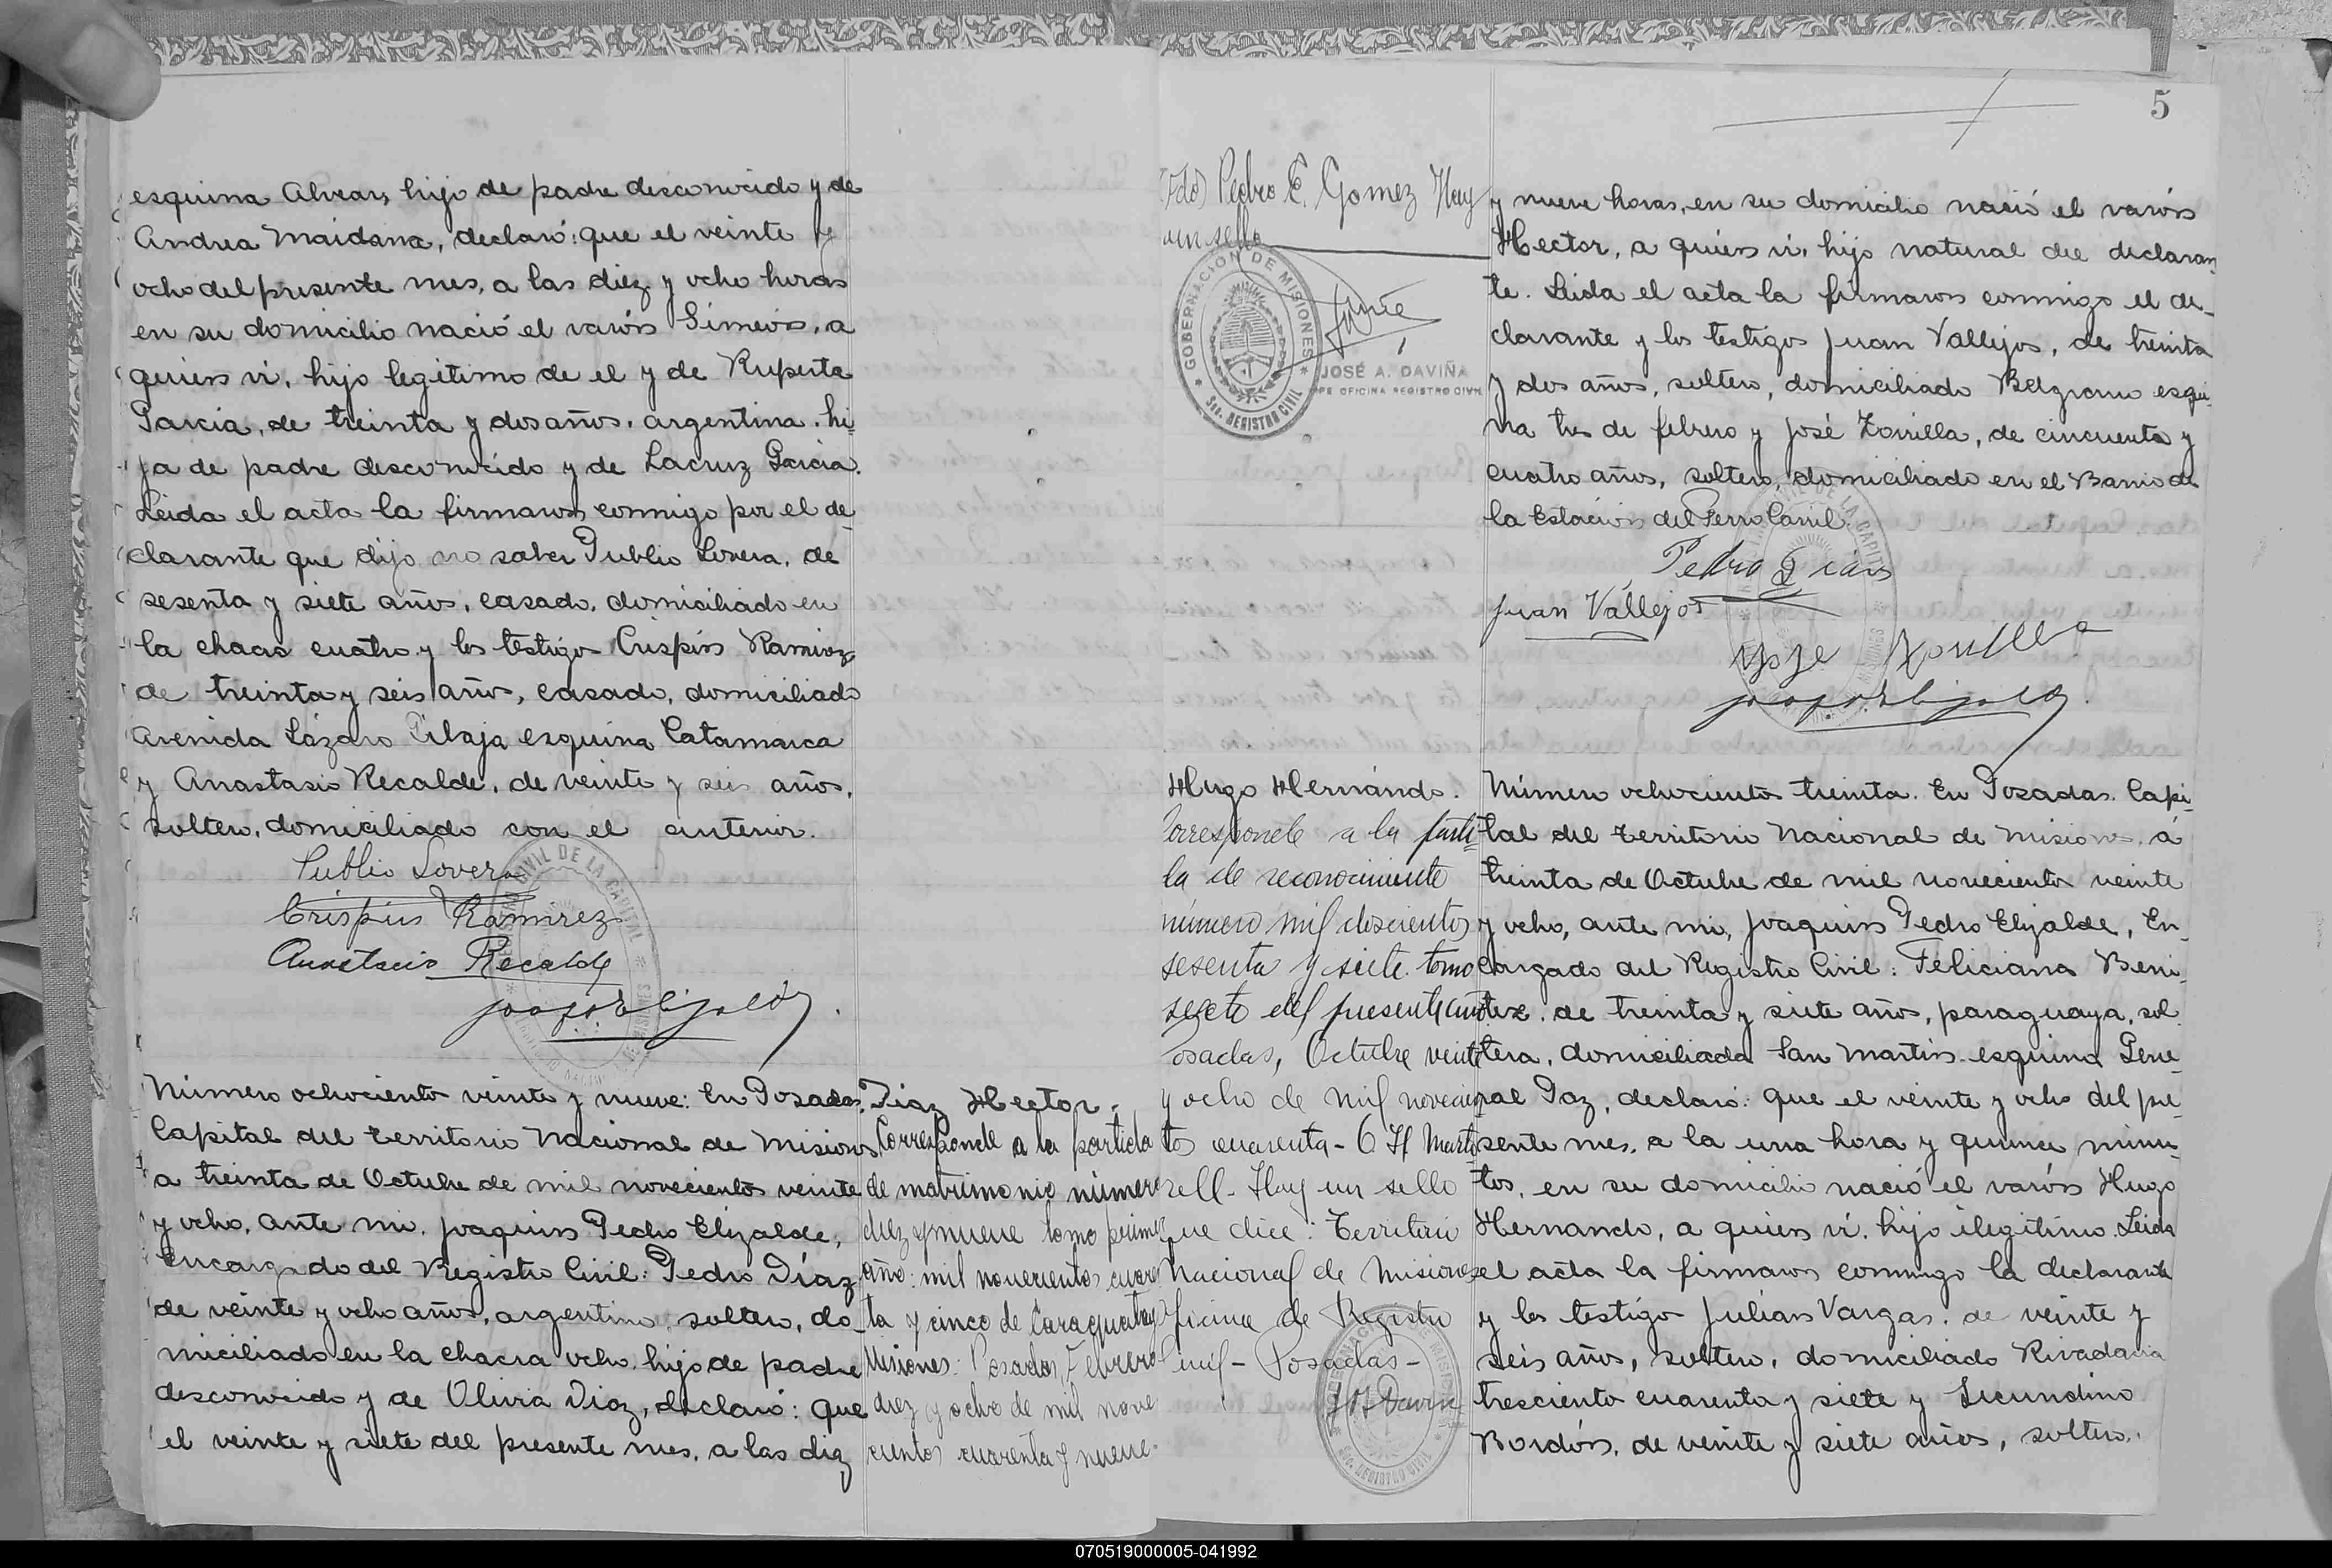 esquina Alvear, hijo de padre desconocido y de
Andrea Maidana, declaró: que el veinte y
ocho del presente mes, a las diez y ocho horas
en su domicilio nació el varón Simeón, a
quien vi, hijo legitimo de el y de Ruperta
Garcia, de treinta y dos años, argentina, hi-
ja de padre desconocido y de Lacruz Garcia.
Leida el acta la firmaron conmigo por el de-
clarante que dijo no saber Publio Lovera, de
sesenta y siete años, casado, domiciliado en
la chacra cuatro y los testigos Crispin Ramirez
de treinta y seis años, casado, domiciliado
Avenida Lázaro Gibaja esquina Catamarca
y Anastasio Recalde, de veinte y seis años,
soltero, domiciliado con el anterior.
Publio Lovera
Crispin Ramirez
Anastacio Recalde
Número ochociento veinte y nueve: En Posadas,
Capital del Territorio Nacional de Misiones
a treinta de Octubre de mil novecientos veinte
y ocho, ante mi, Joaquin Pedro Elizalde,
Encargado del Registro Civil: Pedro Díaz
de veinte y ocho años, argentino, soltero, do-
miciliado en la chacra ocho, hijo de padre
desconocido y de Olivia Diaz, declaró: que
el veinte y siete del presente mes, a las diez
Diaz Hector.
Corresponde a la partida
de matrimonio número
diez y nueve tomo primero
año: mil novecientos cuaren
ta y cinco de Caraguatay
Misiones: Posadas, Febrero
diez y ocho de mil nove
cientos cuarenta y nueve.
5
(Fdo) Pedro E. Gomez Hay
un sello
GOBERNACIÓN DE MISIONES
Sec. REGISTRO CIVIL
JOSÉ A. DAVIÑA
JEFE OFICINA REGISTRO CIVIL
y nueve horas, en su domicilio nació el varón
Hector, a quien vi, hijo natural del declaran-
te. Leida el acta la firmaron conmigo el de-
clarante y los testigos Juan Vallejos, de treinta
y dos años, soltero, domiciliado Belgrano esqui-
na tres de febrero y José Zorrilla, de cincuenta y
cuatro años, soltero, domiciliado en el Barrio de
la Estación del Ferro Carril.
Pedro Diaz
Juan Vallejos
Jose Zorrilla
Hugo Hernándo.
Corresponde a la parti-
da de reconocimiento
número mil doscientos
sesenta y siete tomo
sexto del presente año
Posadas, Octubre veinte
y ocho de mil novecien
tos cuarenta - O H Marto
rell - Hay un sello
que dice: Territorio
Nacional de Misiones
Oficina de Registro
Civil - Posadas -
Sec. REGISTRO CIVIL
Número ochocientos treinta. En Posadas. Capi-
tal del Territorio Nacional de Misiones, á
treinta de Octubre de mil novecientos veinte
y ocho, ante mi, Joaquin Pedro Elizalde, En-
cargado del Registro Civil: Feliciana Beni-
tez, de treinta y siete años, paraguaya, sol-
tera, domiciliada San Martin esquina Gene-
ral Paz, declaró: que el veinte y ocho del pre-
sente mes, a la una hora y quince minu-
tos, en su domicilio nació el varón Hugo
Hernando, a quien vi, hijo ilegitimo. Leida
el acta la firmaron conmigo la declarante
y los testigo Julian Vargas, de veinte y
seis años, soltero, domiciliado Rivadavia
tresciento cuarenta y siete y Secundino
Bordón, de veinte y siete años, soltero,
070519000005-041992